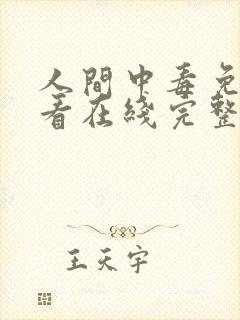 人間中毒免
看在綫完整
王天宇